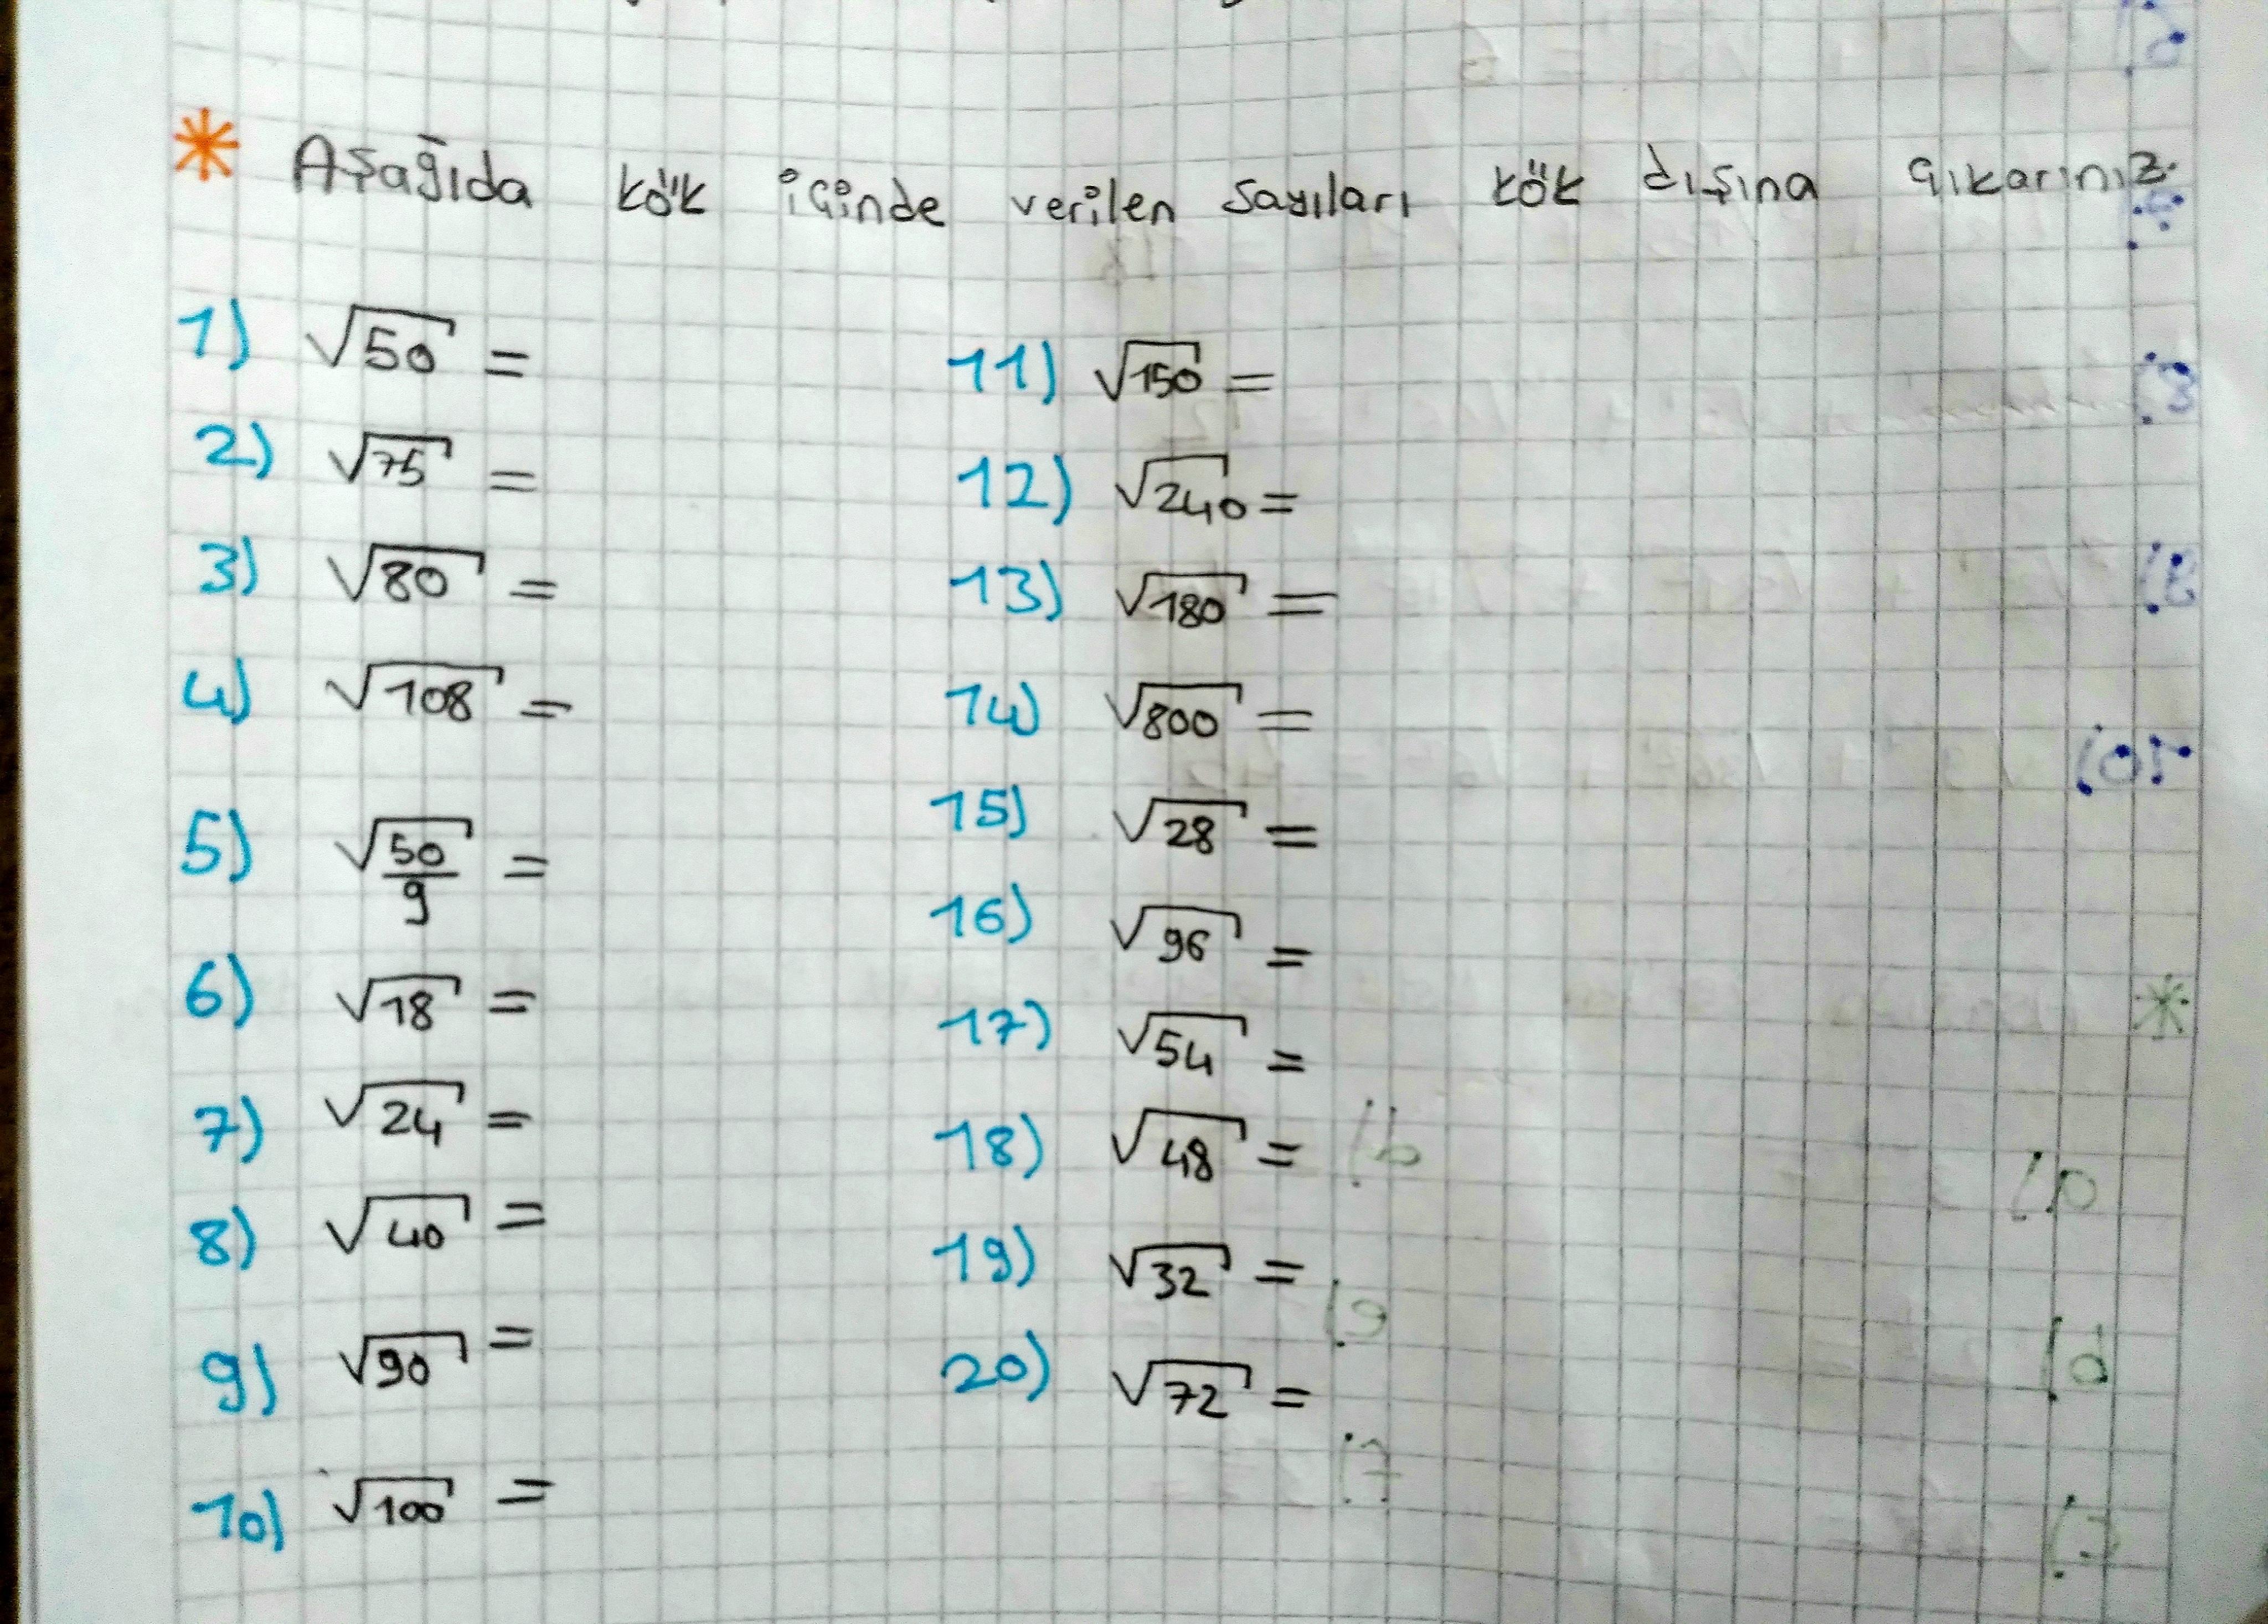 * Aşağıda kök içinde verilen sayıları kök dışına çıkarınız.
1) √50 =
2) √75 =
3) √80 =
4) √108 =
5) √50/9 =
6) √18 =
7) √24 =
8) √40 =
9) √90 =
10) √100 =
11) √150 =
12) √240 =
13) √180 =
14) √800 =
15) √28 =
16) √96 =
17) √54 =
18) √48 =
19) √32 =
20) √72 =